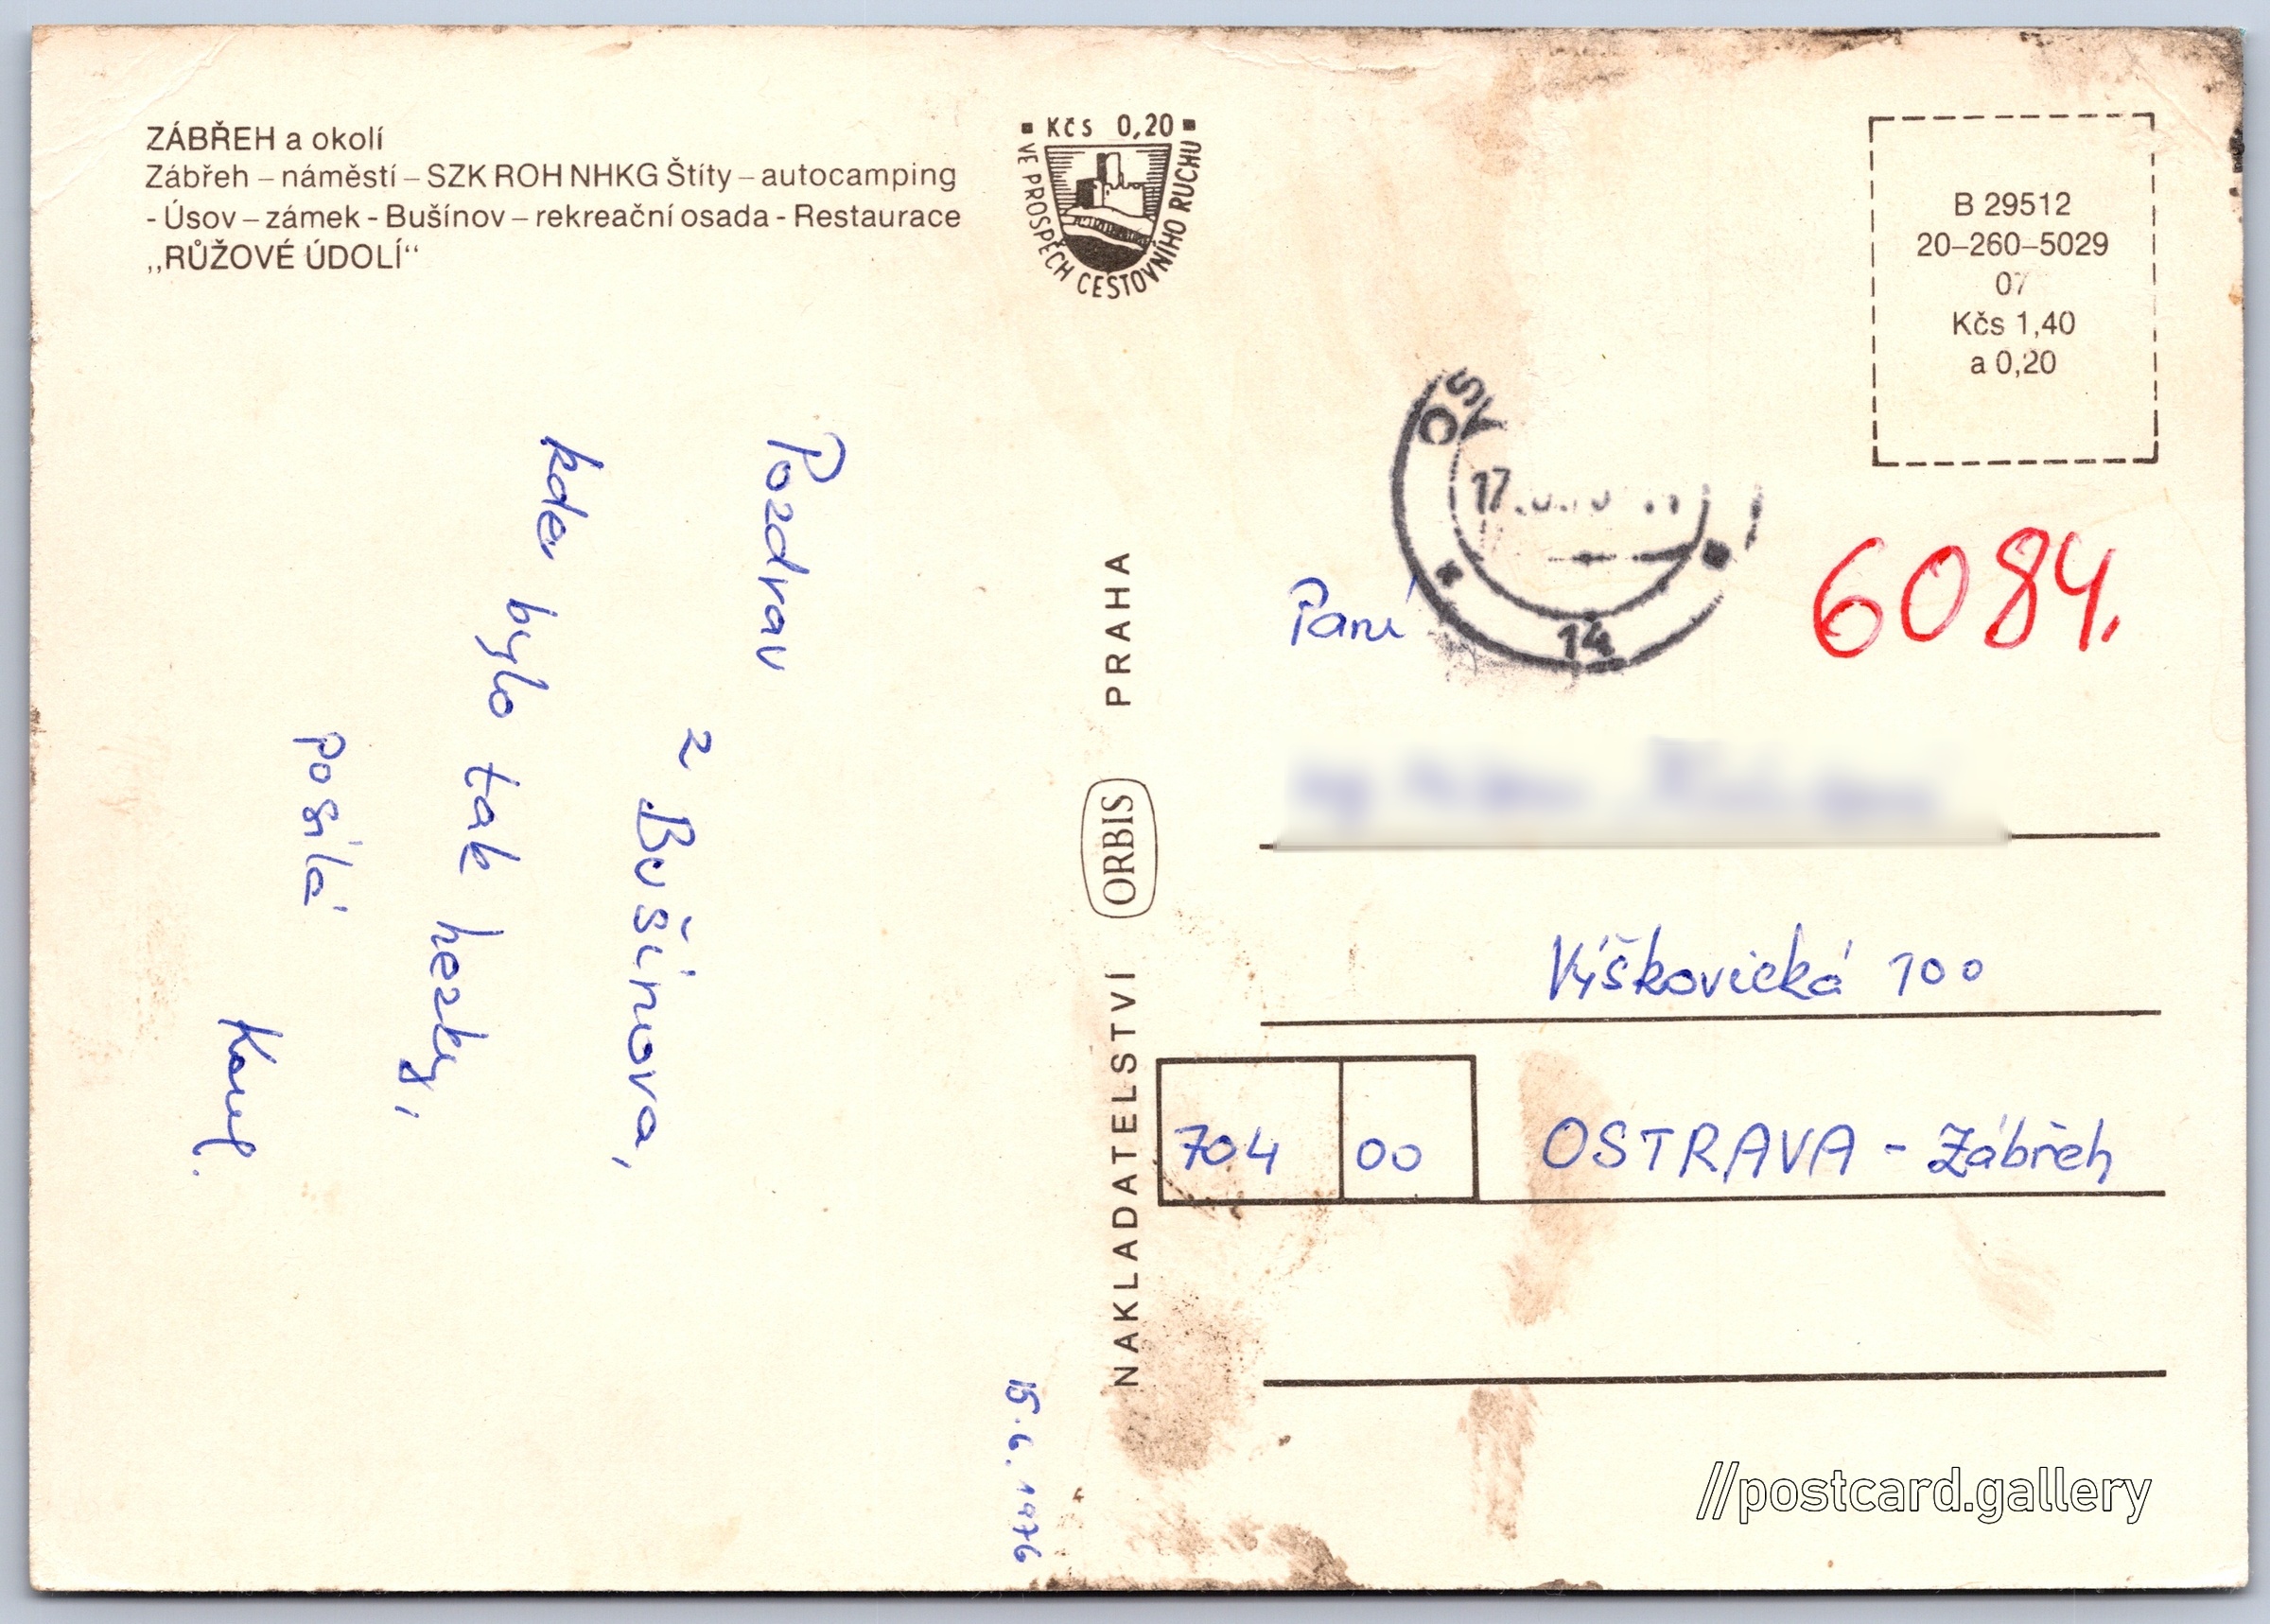 ZÁBŘEH a okolí
Zábřeh – náměstí – SZK ROH NHKG Štíty – autocamping
- Úsov – zámek - Bušínov – rekreační osada - Restaurace
„RŮŽOVÉ ÚDOLÍ“
Kčs 0,20
VE PROSPĚCH CESTOVNÍHO RUCHU
B 29512
20–260–5029
07
Kčs 1,40
a 0,20
Pozdrav
z Bušínova,
kde bylo tak hezky,
posílá
Karel.
15.6.1976
NAKLADATELSTVÍ ORBIS PRAHA
17.
14
6084.
Paní
Výškovická 100
704 00 OSTRAVA - Zábřeh
//postcard.gallery